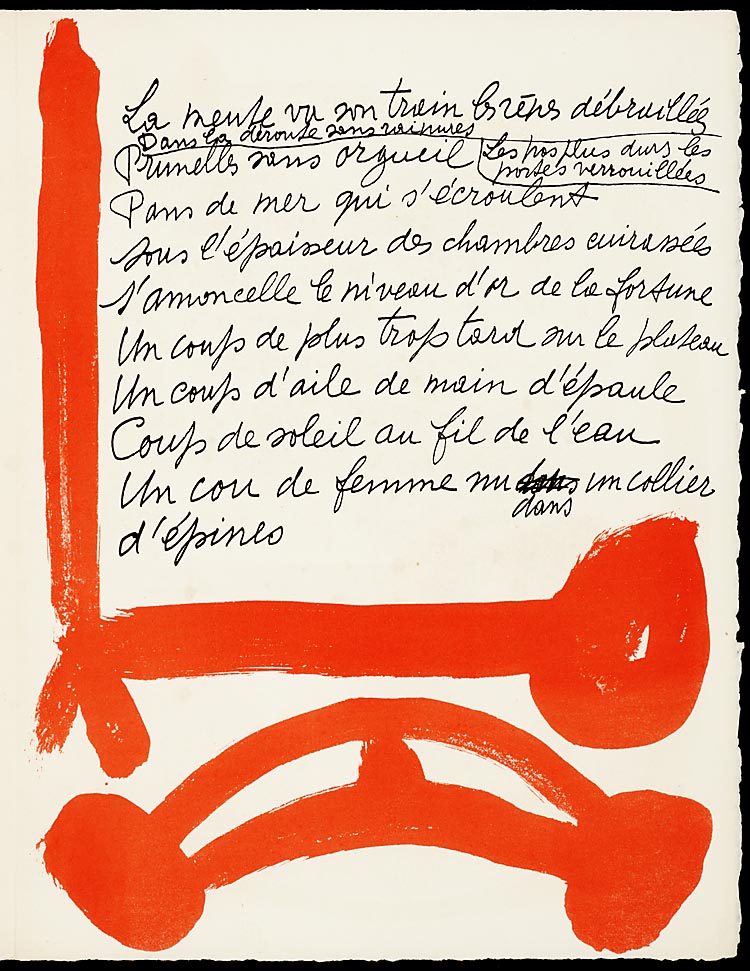 La meute va son train les rênes débraillées
Dans la déroute sans rainures
Prunelles sans orgueil
Les pas plus durs les
portes verrouillées
Pans de mer qui s'écroulent
sous l'épaisseur des chambres cuirassées
s'amoncelle le niveau d'or de la fortune
Un coup de plus trop tard sur le plateau
Un coup d'aile de main d'épaule
Coup de soleil au fil de l'eau
Un cou de femme nu dans un collier
d'épines